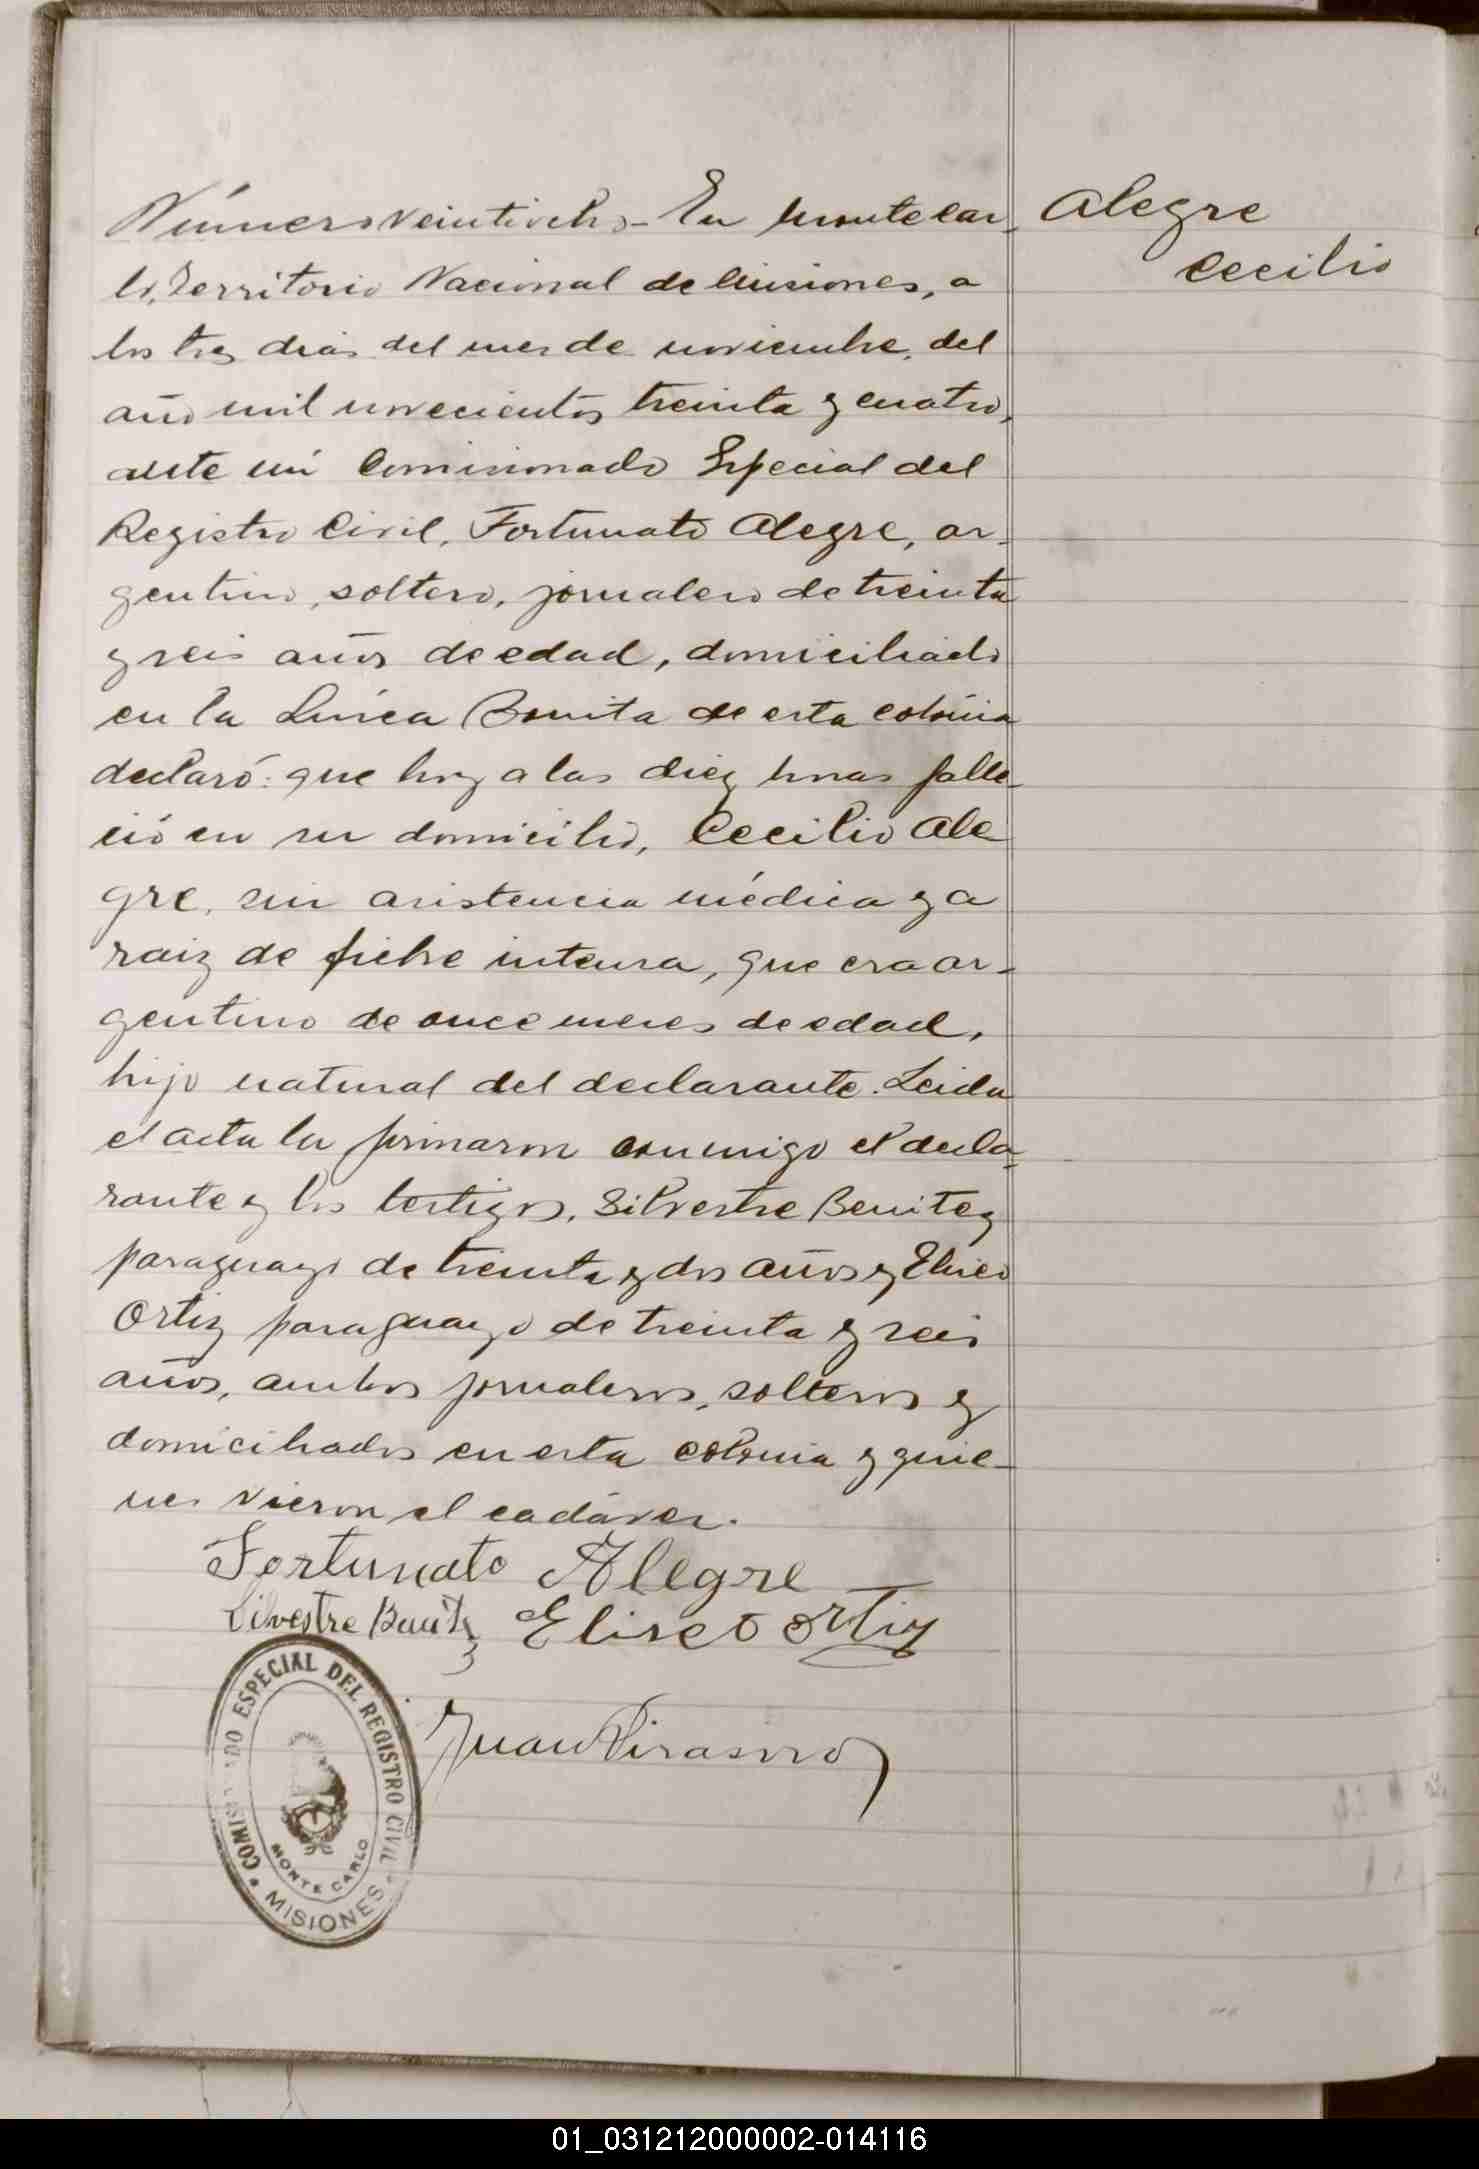 Número veintiocho - En Montecar-
lo, Territorio Nacional de Misiones, a
los tres dias del mes de noviembre, del
año mil novecientos treinta y cuatro,
ante mi Comisionado Especial del
Registro Civil, Fortunato Alegre, ar-
gentino, soltero, jornalero de treinta
y seis años de edad, domiciliado
en la Linea Bonita de esta colonia
declaró: que hoy a las diez horas falle-
ció en su domicilio, Cecilio Ale
gre, sin asistencia médica y a
raiz de fiebre intensa, que era ar-
gentino de once meses de edad,
hijo natural del declarante. Leida
el acta la firmaron conmigo el decla-
rante y los testigos, Silvestre Benitez
paraguayo de treinta y dos años y Eliseo
Ortiz paraguayo de treinta y seis
años, ambos jornaleros, solteros y
domiciliados en esta colonia y quie-
nes vieron el cadáver.
Alegre
Cecilio
Fortunato Alegre
Silvestre Benitez Eliseo Ortiz
Juan
COMISIONADO ESPECIAL DEL REGISTRO CIVIL
MONTE CARLO
MISIONES
01_031212000002-014116